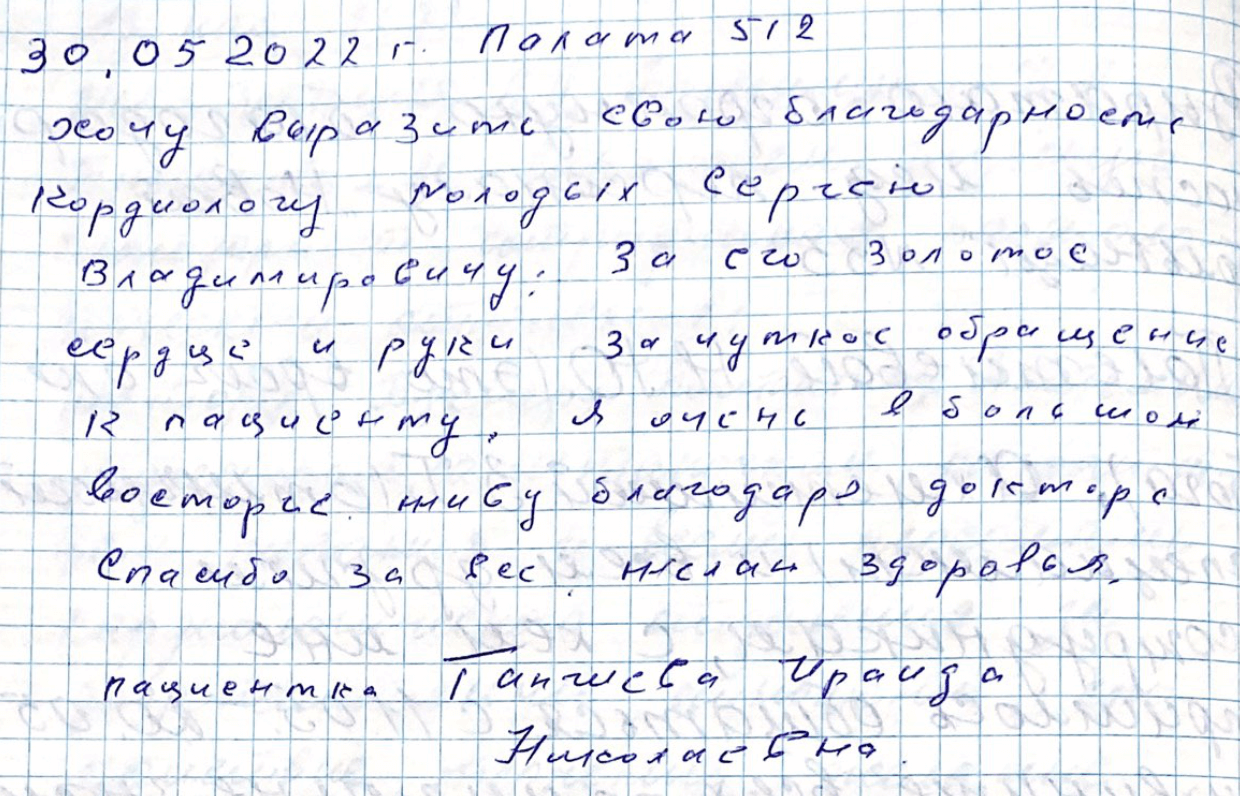 30.05 2022 г. Палата 512
хочу выразить свою благодарность
Кардиологу Молодых Сергею
Владимировичу: За его золотое
сердце и руки за чуткое обращение
к пациенту. Я очень в большом
восторге. живу благодаря доктора
Спасибо за все. желаю здоровья.
пациентка Ираида
Николаевна.